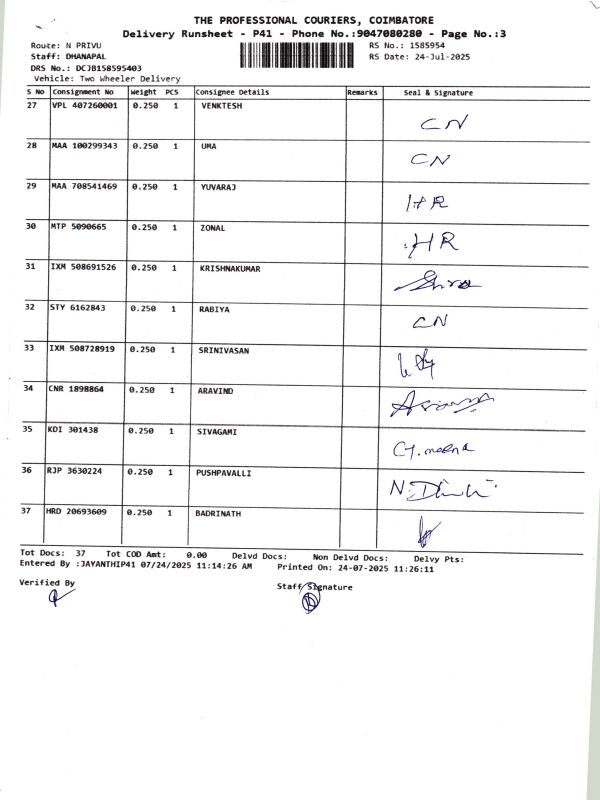 THE PROFESSIONAL COURIERS, COIMBATORE
Delivery Runsheet - P41 - Phone No.:9047080280 - Page No.:3
Route: N PRIVU RS No.: 1585954
Staff: DHANAPAL RS Date: 24-Jul-2025
DRS No.: DCJB158595403
Vehicle: Two Wheeler Delivery
S No Consignment No Weight PCS Consignee Details Remarks Seal & Signature
27 VPL 407260001 0.250 1 VENKTESH CN
28 MAA 100299343 0.250 1 UMA CN
29 MAA 708541469 0.250 1 YUVARAJ HR
30 MTP 5090665 0.250 1 ZONAL HR
31 IXM 508691526 0.250 1 KRISHNAKUMAR
32 STY 6162843 0.250 1 RABIYA CN
33 IXM 508728919 0.250 1 SRINIVASAN
34 CNR 1898864 0.250 1 ARAVIND
35 KDI 301438 0.250 1 SIVAGAMI G.meena
36 RJP 3630224 0.250 1 PUSHPAVALLI
37 HRD 20693609 0.250 1 BADRINATH
Tot Docs: 37 Tot COD Amt: 0.00 Delvd Docs: Non Delvd Docs: Delvy Pts:
Entered By :JAYANTHIP41 07/24/2025 11:14:26 AM Printed On: 24-07-2025 11:26:11
Verified By Staff Signature